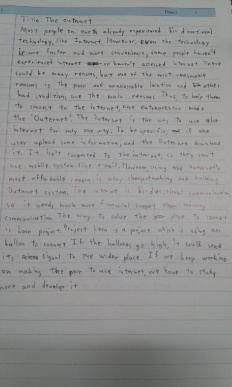 Title: The outernet
Most people on earth already experienced bi-directional
technology, like Internet. However, even the technology
become faster and more convenience, some people haven't
experienced internet or haven't accessed internet. There
could be many reasons, but one of the most reasonable
reasons is the poor and unreasonable location and
bad condition, are the main reasons. Thus, to help them
to connect to the internet, the entrepreneur made
the "Outernet". The Outernet is the way to use the
internet for only one way. To be specific, if one
user upload some information, and the Outernet download
it. It isn't connected to the internet, so they can't
use mobile system like However, using the
most affordable
Outernet system. The internet is bi-directional communication
so it needs much more financial support
communication. The way to solve the poor place to connect
is Loon project. Project Loon is a project which is using air
balloon to connect. If the balloons go high, it could send
its signal to the wider place. If we keep working
on making the poor to use internet, we have to study
more and develop it.